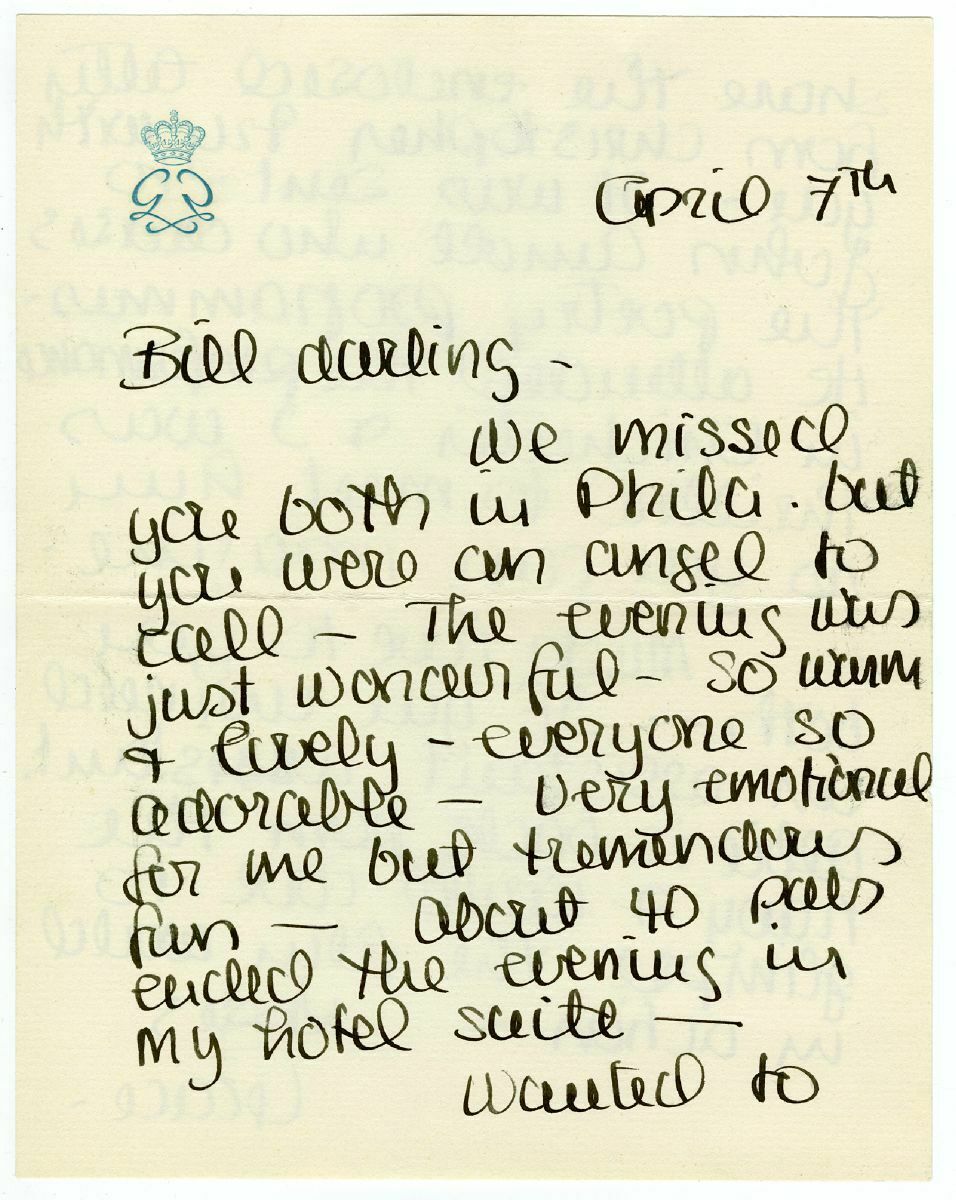 April 7TH
Bill darling -
We missed
you both in Phila. but
you were an angel to
call — The evening was
just wonderful - so warm
& lively - everyone so
adorable — very emotional
for me but tremendous
fun — About 40 pals
ended the evening in
my hotel suite —
Wanted to